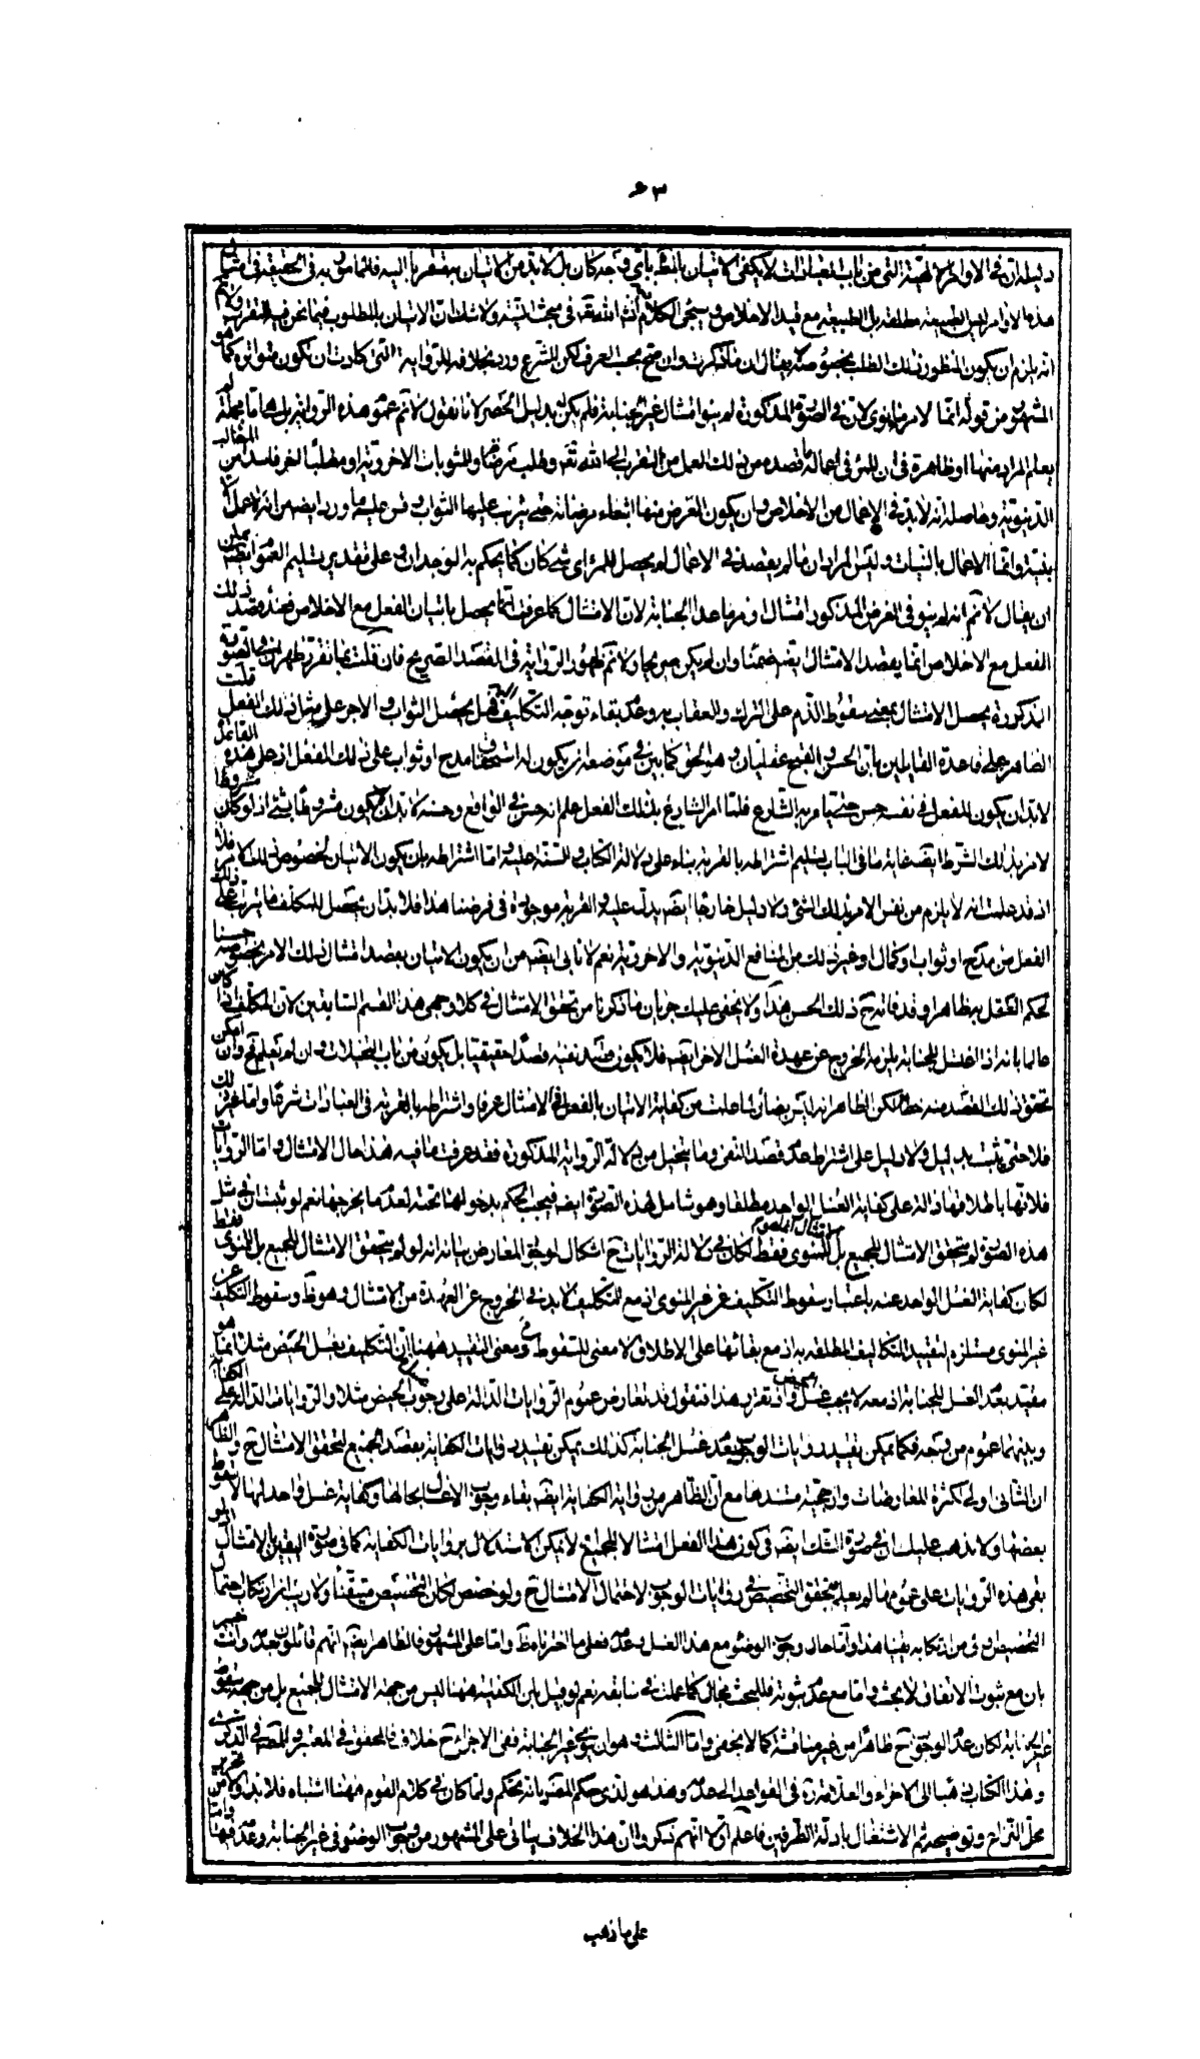 ٦٣
دليله ان في الاوامر الالهية التي من باب العبادات لا يكفى الاتيان بالمط بأي وجه كان بل لا بد من الاتيان به متقربا اليه فالمامور به في الحقيقة في امثال
هذه الاوامر ليس الطبيعة مطلقة بل الطبيعة مع قيد الاخلاص وسيجئ الكلام انشاء الله تعالى في مبحث النية ولا شك ان الاتيان بالمطلوب فيما نحن فيه للتقرب ولا نم
انه يلزم ان يكون المنظور ذلك الطلب بخصوصه لا يقال ان ما ذكرت وان صح بحسب العرف لكن الشرع ورد بخلافه للرواية التي كادت ان تكون متواترة كما هو
المشهور من قوله انما لامرء ما نوى لان في الصورة المذكورة لم ينو امتثال غير الجنابة فلم يكن له بدليل الحصر لانا نقول لا نم عموم هذه الرواية بل هي اما مجملة لم
يعلم المراد منها او ظاهرة في ان للمرء في اعماله ما قصده من ذلك العمل من التقرب الى الله تعالى وطلب مرضاته والمثوبات الاخروية او مطلبا اخر فاسدا من المطالب
الدنيوية وحاصله انه لا بد في الاعمال من الاخلاص وان يكون الغرض منها ابتغاء مرضاته حتى يترتب عليها الثواب وقس عليه ما ورد ايضا من انه لا عمل الا
بنية وانما الاعمال بالنيات وليس المراد ان ما لم يقصد في الاعمال لم يحصل للمرء اي شئ كان كما يحكم به الوجدان وعلى تقدير تسليم العموم ايضا يمكن
ان يقال لا نم انه لم ينو في الفرض المذكور امتثال اوامر ما عدا الجنابة لان الامتثال كما عرفت انما يحصل باتيان الفعل مع الاخلاص فعند قصد ذلك
الفعل مع الاخلاص انما يقصد الامتثال ايضا ضمنا وان لم يكن صريحا ولا نم ظهور الرواية في القصد الصريح فان قلت بما تقرر ظهر ان في الصورة
المذكورة يحصل الامتثال بمعنى سقوط الذم على الترك والعقاب به وعدم بقاء توجه التكليف اليه فهل يحصل الثواب والاجر على مثل ذلك الفعل قلت
الظاهر على قاعدة القايلين بان الحسن والقبح عقليان وهو الحق كما بين في موضعه ان يكون له استحقاق مدح او ثواب على ذلك الفعل اذ على هذه القاعدة
لا بد ان يكون للفعل في نفسه حسن حتى يامر به الشارع فلما امر الشارع بذلك الفعل علم انه حسن في الواقع وحسنه لا بد ان لا يكون مشروطا بشئ اذ لو كان مشروطا
لامر بذلك الشرط ايضا غاية ما في الباب تسليم اشتراطه بالقربة بناء على دلالة الكتاب والسنة عليه واما اشتراطه بان يكون الاتيان لخصوص ذلك الامر فلا
اذ قد علمت انه لا يلزم من نفس الامر بذلك الشئ ولا دليل خارجا ايضا يدل عليه والقربة موجودة في فرضنا هذا فلا بد ان يحصل للمكلف ما يترتب على ذلك
الفعل من مدح او ثواب او كمال او غير ذلك من المنافع الدنيوية والاخروية نعم لا نابى ايضا من ان يكون الاتيان بقصد امتثال ذلك الامر بخصوصه حسنا
لحكم العقل به ظاهرا وقد فات ح ذلك الحسن هذا ولا يخفى عليك جريان ما ذكرنا من تحقق الامتثال في كلا وجهي هذا القسم السابقين لان المكلف اذا كان
عالما بانه اذا اغتسل للجنابة يلزمه الخروج عن عهدة الغسل الاخر ايضا فلا يكون قصد نفيه قصدا حقيقيا بل يكون من باب التخيلات وان لم يعلم ح وان امكن
تحقق ذلك القصد منه خطاء لكن الظاهر انه ليس بضائر لما علمت من كفاية الاتيان بالفعل في الامتثال عرفا واشتراطه بالقربة في العبادات شرعا واما غير ذلك
فلا حتى يثبت بدليل ولا دليل على اشتراط عدم قصد النفى وما يتخيل من دلالة الرواية المذكورة فقد عرفت ما فيه هذا حال الامتثال واما الروايات
فلانها باطلاقها دالة على كفاية الغسل الواحد مطلقا وهو شامل لهذه الصورة ايضا فيجب الحكم بدخولها تحته لعدم ما يخرجها نعم لو ثبت ان في مثل
هذه الصورة لم يتحقق الامتثال للجميع بل للمنوى فقط لكان في دلالة الروايات ح اشكال لوجود المعارض بيانه انه لو لم يتحقق الامتثال للجميع بل للمنوى فقط
لكان كفاية الغسل الواحد عنه باعتبار سقوط التكليف عن غير المنوى اذ مع التكليف لا بد في الخروج عن العهدة من الامتثال وهو ظ وسقوط التكليف عن
غير المنوى مستلزم لتقييد التكاليف المطلقة به اذ مع بقائها على الاطلاق لا معنى للسقوط ومعنى التقييد ههنا ان التكليف بغسل الحيض مثلا انما هو
مقيد بعدم الغسل للجنابة اذ معه لا يجب غسل واذ تقرر هذا فنقول قد تعارض عموم الروايات الدالة على وجوب الحيض مثلا والروايات الدالة على الكفاية
وبينهما عموم من وجه فكما يمكن تقييد روايات الوجوب بعدم غسل الجنابة كذلك يمكن تقييد روايات الكفاية بقصد الجميع لتحقق الامتثال ح والظاهر
ان الثاني اولى لكثرة المعارضات وارجحية مستندها مع ان الظاهر من رواية الكفاية ايضا بقاء وجوب الاغسال بحالها وكفاية غسل واحد لها لا سقوط
بعضها ولا يذهب عليك ان في صورة الشك ايضا في كون هذا الفعل امتثالا للجميع لا يمكن الاستدلال بروايات الكفاية كما في صورة اليقين بالامتثال اذ لو
بقى هذه الروايات على عمومها لم يعلم تحقق التخصيص في روايات الوجوب لاحتمال الامتثال ح ولو خصص لكان التخصيص متيقنا ولا ريب ان ارتكاب احتمال
التخصيص اولى من ارتكابه يقينا هذا واما حال وجوب الوضوء مع هذا الغسل وعدمه فعلى ما اخترناه ظ واما على المشهور فالظاهر ايضا انهم قائلون بعدمه وانت خبير
بان مع ثبوت الاتفاق لا بحث واما مع عدم ثبوته فللبحث مجال كما علمت في سابقه نعم لو قيل بان الكفاية ههنا ليس من جهة الامتثال للجميع بل من جهة سقوط
غير الجنابة لكان عدم الوجوب ح ظاهرا من غير مناقشة كما لا يخفى واما الثالث وهو ان ينوى غير الجنابة ففى الاجزاء ح خلاف فالمحقق في المعتبر والمصنف في الذكرى
وهذا الكتاب ذهبا الى الاجزاء والعلامة في القواعد الى عدمه وهذا هو الذي حكم المصنف بانه تحكم ولما كان في كلام القوم ههنا اشتباه فلا بد اولا من تحرير
محل النزاع وتوضيحه ثم الاشتغال بادلة الطرفين فاعلم اولا انهم ذكروا ان هذا الخلاف يتاتى على المشهور من وجوب الوضوء في غير الجنابة وعدمه فيها واما
على ما ذهب